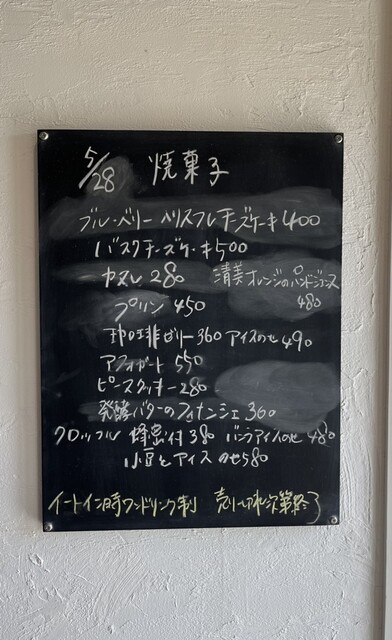 5/28 焼菓子
ブルーベリー スフレチーズケーキ 400
バスクチーズケーキ 500
カヌレ 280 清美オレンジのパンドジェンヌ 480
プリン 450
珈琲ゼリー 360 アイスのせ 490
アフォガート 550
ピースクッキー 280
発酵バターのフィナンシェ 360
クロッフル 蜂蜜付 380 バニラアイスのせ 480
小豆とアイスのせ 580
イートイン時ワンドリンク制 売り切れ次第終了